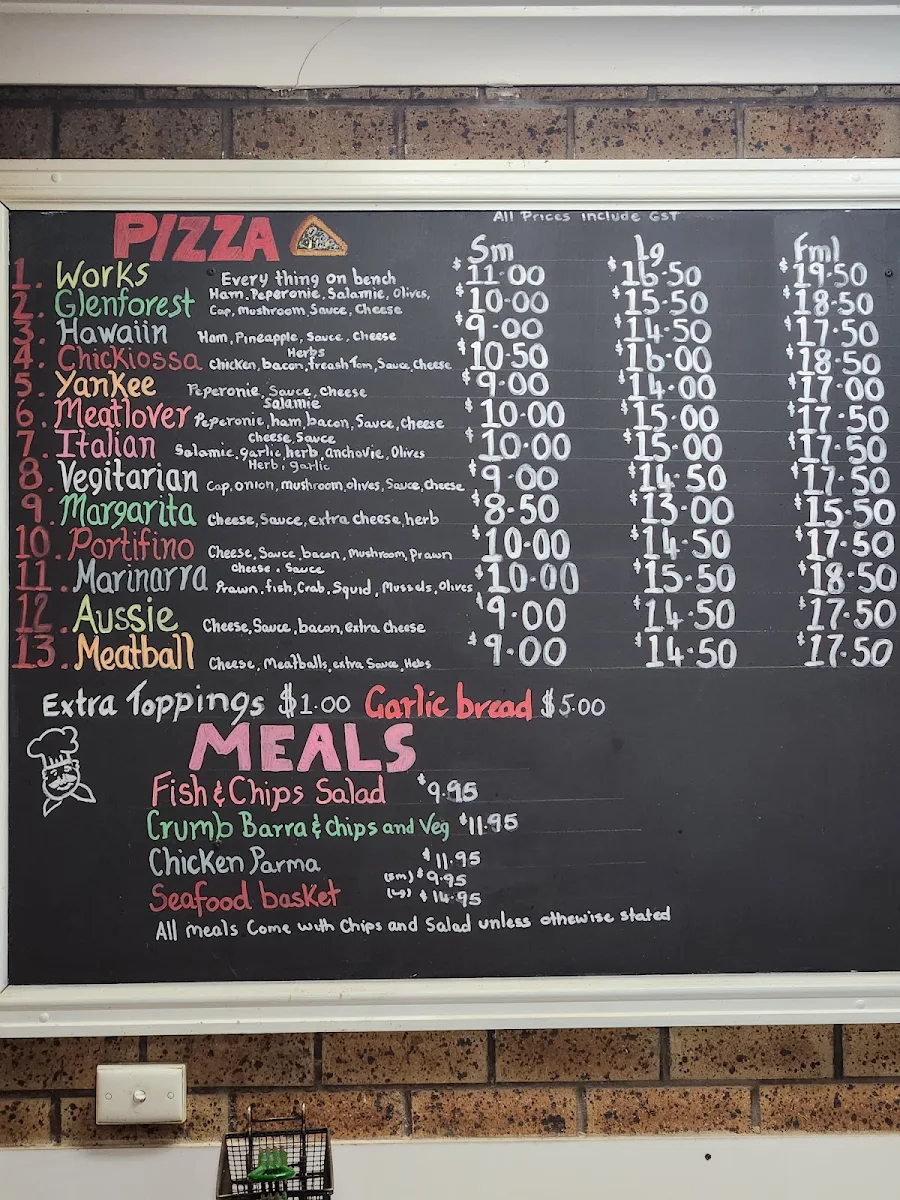 All Prices include GST
PIZZA
Sm Lg Fml
1. Works Every thing on bench $11.00 $16.50 $19.50
2. Glenforest Ham, Peperonie, Salamie, Olives, $10.00 $15.50 $18.50
Cap, Mushroom Sauce, Cheese
3. Hawaiin Ham, Pineapple, Sauce, Cheese $9.00 $14.50 $17.50
Herbs
4. Chickiossa Chicken, bacon, freash Tom, Sauce, Cheese $10.50 $16.00 $18.50
5. Yankee Peperonie, Sauce, cheese $9.00 $14.00 $17.00
Salamie
6. Meatlover Peperonie, ham, bacon, Sauce, Cheese $10.00 $15.00 $17.50
cheese, Sauce
7. Italian Salamie, garlic, herb, anchovie, Olives $10.00 $15.00 $17.50
Herb, garlic
8. Vegitarian Cap, onion, mushroom, olives, Sauce, Cheese $9.00 $14.50 $17.50
9. Margarita Cheese, Sauce, extra cheese, herb $8.50 $13.00 $15.50
10. Portifino Cheese, Sauce, bacon, Mushroom, Prawn $10.00 $14.50 $17.50
Cheese, Sauce
11. Marinarra Prawn, fish, Crab, Squid, Mussels, Olives $10.00 $15.50 $18.50
12. Aussie Cheese, Sauce, bacon, extra cheese $9.00 $14.50 $17.50
13. Meatball Cheese, Meatballs, extra Sauce, Hebs $9.00 $14.50 $17.50
Extra Toppings $1.00 Garlic bread $5.00
MEALS
Fish & Chips Salad $9.95
Crumb Barra & chips and Veg $11.95
Chicken Parma $11.95
(sm) $9.95
Seafood basket (Lg) $14.95
All meals Come with Chips and Salad unless othewise stated